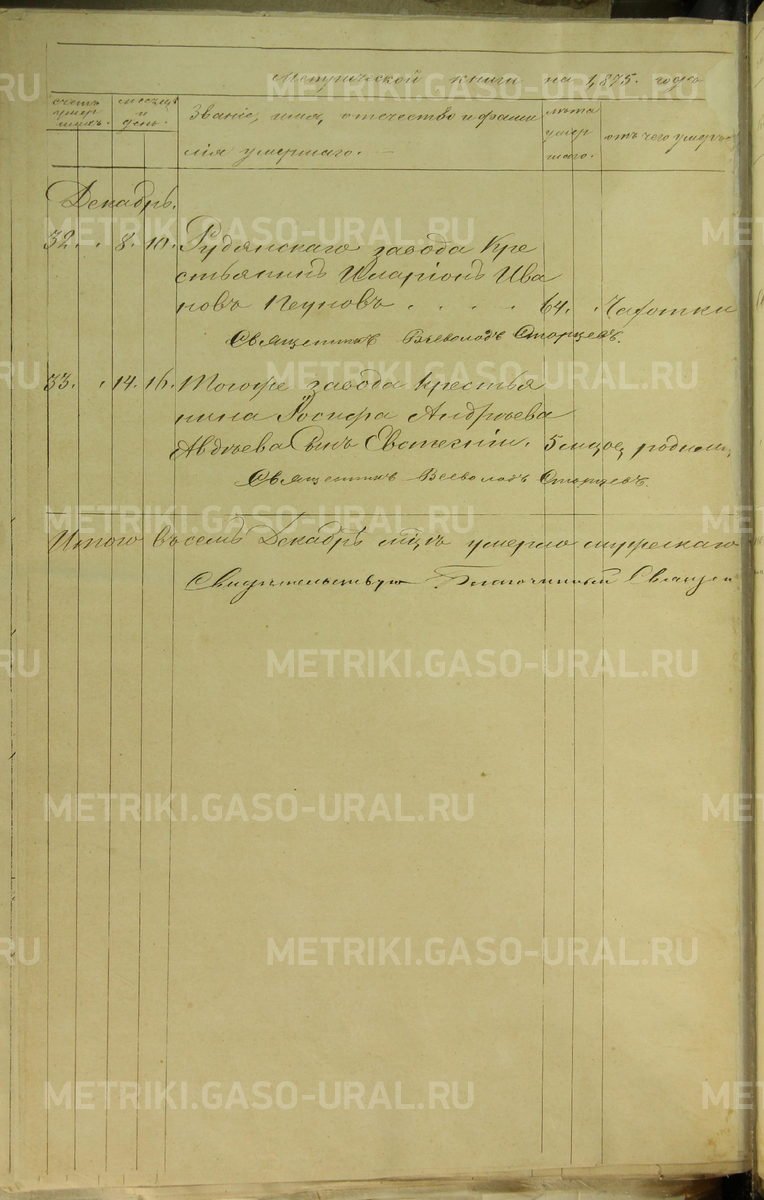 Метрической книги на 1,875. годъ
счетъ умер шихъ.
месяцъ и день.
Званіе, имя, отечество и фами
лія умершаго. —
лѣта умер шаго.
отъ чего умеръ
Декабрь.
32. 8. 10. Рудянскаго завода Кре
стьянинъ Иларіонъ Ива
новъ Пеуновъ . . . . 64. Чахотки
Священникъ Всеволодъ Сторцевъ.
33. 14. 16. Тогоже завода крестья
нина Іосифа Андрѣева
Авдѣева сынъ Евгеній. 5 родим
Священникъ Всеволодъ Сторцевъ.
Итого въ семъ Декабрѣ мцѣ умерло мужескаго
Свидѣтельствую Благочинный Священ
METRIKI.GASO-URAL.RU